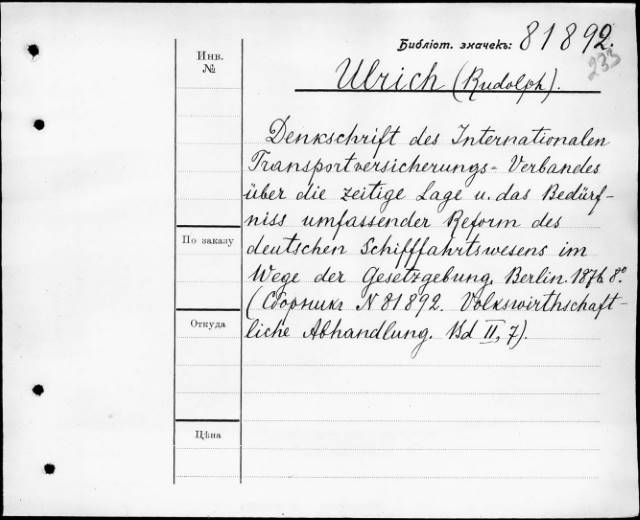 Библіот. значекъ: 81892.
233
Инв. №
Ulrich (Rudolph).
Denkschrift des Internationalen
Transportversicherungs-Verbandes
über die zeitige Lage u. das Bedürf-
niss umfassender Reform des
По заказу
deutschen Schifffahrtswesens im
Wege der Gesetzgebung. Berlin. 1876. 8º
(Сборникъ N 81892. Volkswirthschaft-
Откуда
liche Abhandlung. Bd II, 7).
Цѣна